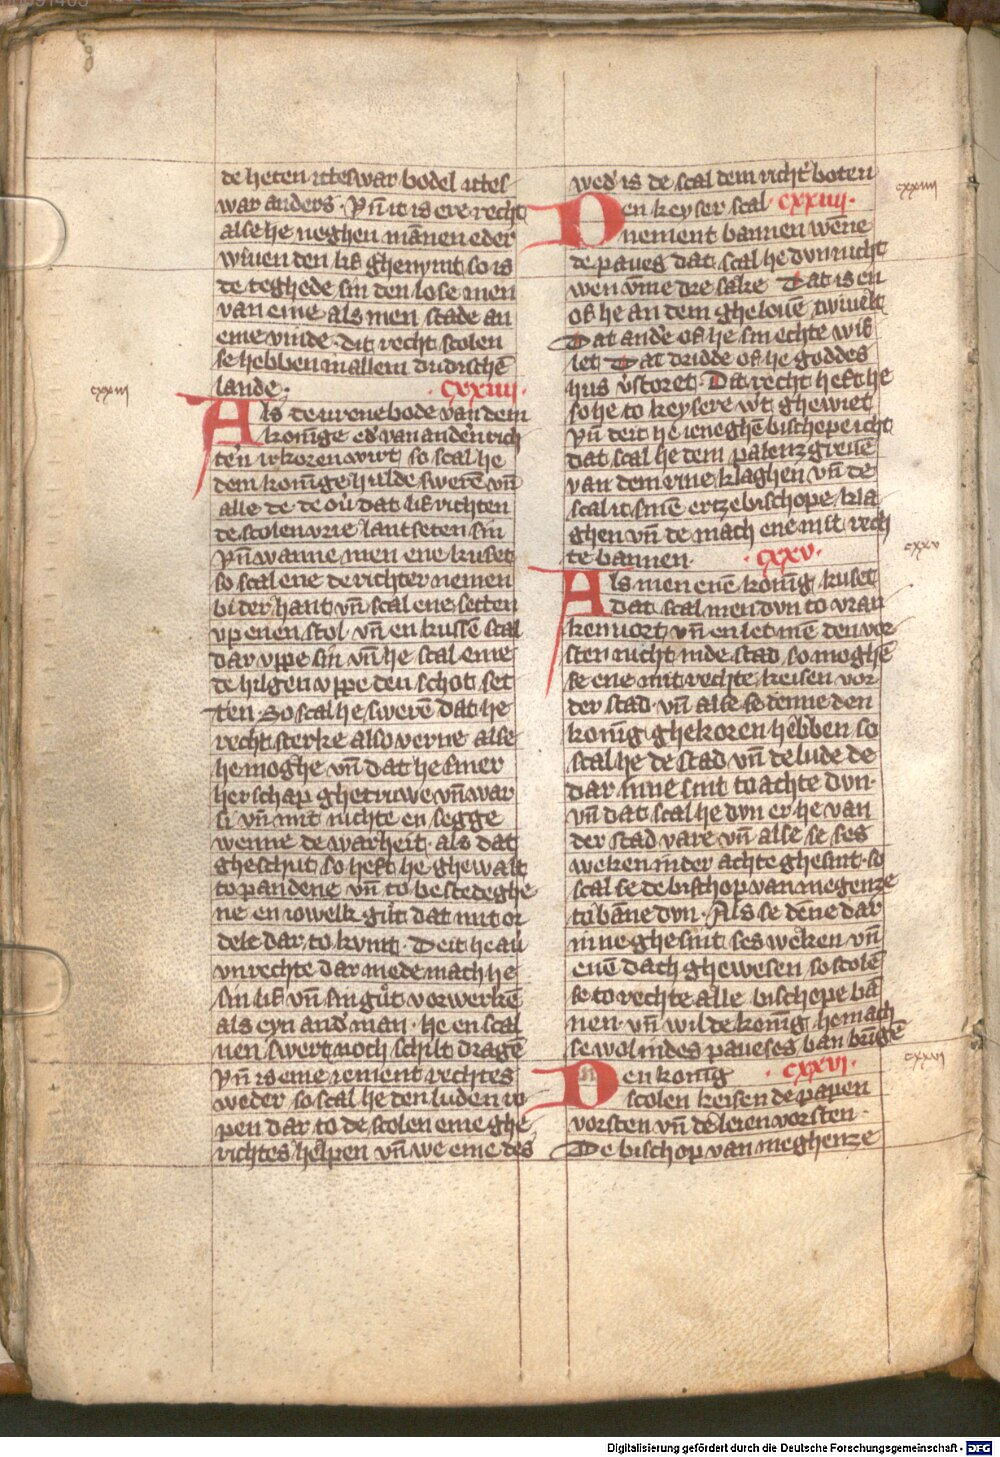 de heten itteswar bodel ittes
war anders · Vn̄ it is ere recht
alse he neghen mānen eder
wiuen den lif ghenymt so is
de teghede sin den lose men
van eme als men stade an
eme vinde · dit recht scolen
se hebben in allem dudischē
lande · cxxiii ·
cxxiii
Als de urone bode van dem
konīge ed' van anden rich
ten irkoren wirt so scal he
dem konīge hulde swerē vn̄
alle de de ou' dat lif richten
de scolen vrie lantseten sin
Vn̄ wanne men ene kuset
so scal ene de richter nemen
bi der hant vn̄ scal ene setten
vp enen stol vn̄ en kussē scal
dar vppe sin vn̄ he scal eme
de hilgen vppe den schot set
ten · So scal he swerē dat he
recht sterke also verne alse
he moghe vn̄ dat he siner
herschap ghetruwe vn̄ war
si vn̄ mit nichte en segge
wenne de warheit · als dat
gheschut so heft he ghewalt
to pandene vn̄ to bestedeghe
ne en iowelk gut dat mit or
dele dar to kvmt · Deit he au
vnrechte dar mede mach he
sin lif vn̄ sin gut vorwerkē
als eyn and' man · he en scal
nen swert noch schilt dragē
Vn̄ is eme iement rechtes
weder so scal he den luden ro
pen dar to de scolen eme ghe
richtes helpen vn̄ we eme des
wed' is de scal dem richt' boten
cxxiiii
Den keyser scal · cxxiiii ·
nement bannen wēne
de paues dat scal he dvn nicht
wen vm̄e dre sake Dat is en
of he an dem ghelouē twiuelt
Dat and'e of he sin echte wif
let Dat drudde of he goddes
hus v'storet · Dit recht heft he
so he to keysere wt ghewiet
Vn̄ deit he ieneghē bischope icht
dat scal he dem palenzgreuē
van dem rine klaghen vn̄ de
scal it sinē ertzebischope kla
ghen vn̄ de mach ene mit rech
te bannen · cxxv ·
cxxv
Als men enē konīg kuset
dat scal men dvn to vran
kenuort vn̄ en let mē den vor
sten nicht in de stad so moghē
se ene mit rechte keisen vor
der stad · vn̄ alse se denne den
konīg ghekoren hebben so
scal he de stad vn̄ de lude de
dar inne sint to achte dvn ·
vn̄ dat scal he dvn er he van
der stad vare vn̄ alse se ses
weken in der achte ghesint · so
scal se de bischop van megenze
to bāne dvn · Als se dēne dar
inne ghesint ses weken vn̄
enē dach ghewesen so scolē
se to rechte alle bischope bā
nen · vn̄ wil de konīg he mach
se wol in des paueses ban brīgē
Den konīg · cxxvi ·
cxxvi
scolen keisen de papen
vorsten vn̄ de leien vorsten ·
De bischop van meghenze
Digitalisierung gefördert durch die Deutsche Forschungsgemeinschaft - DFG